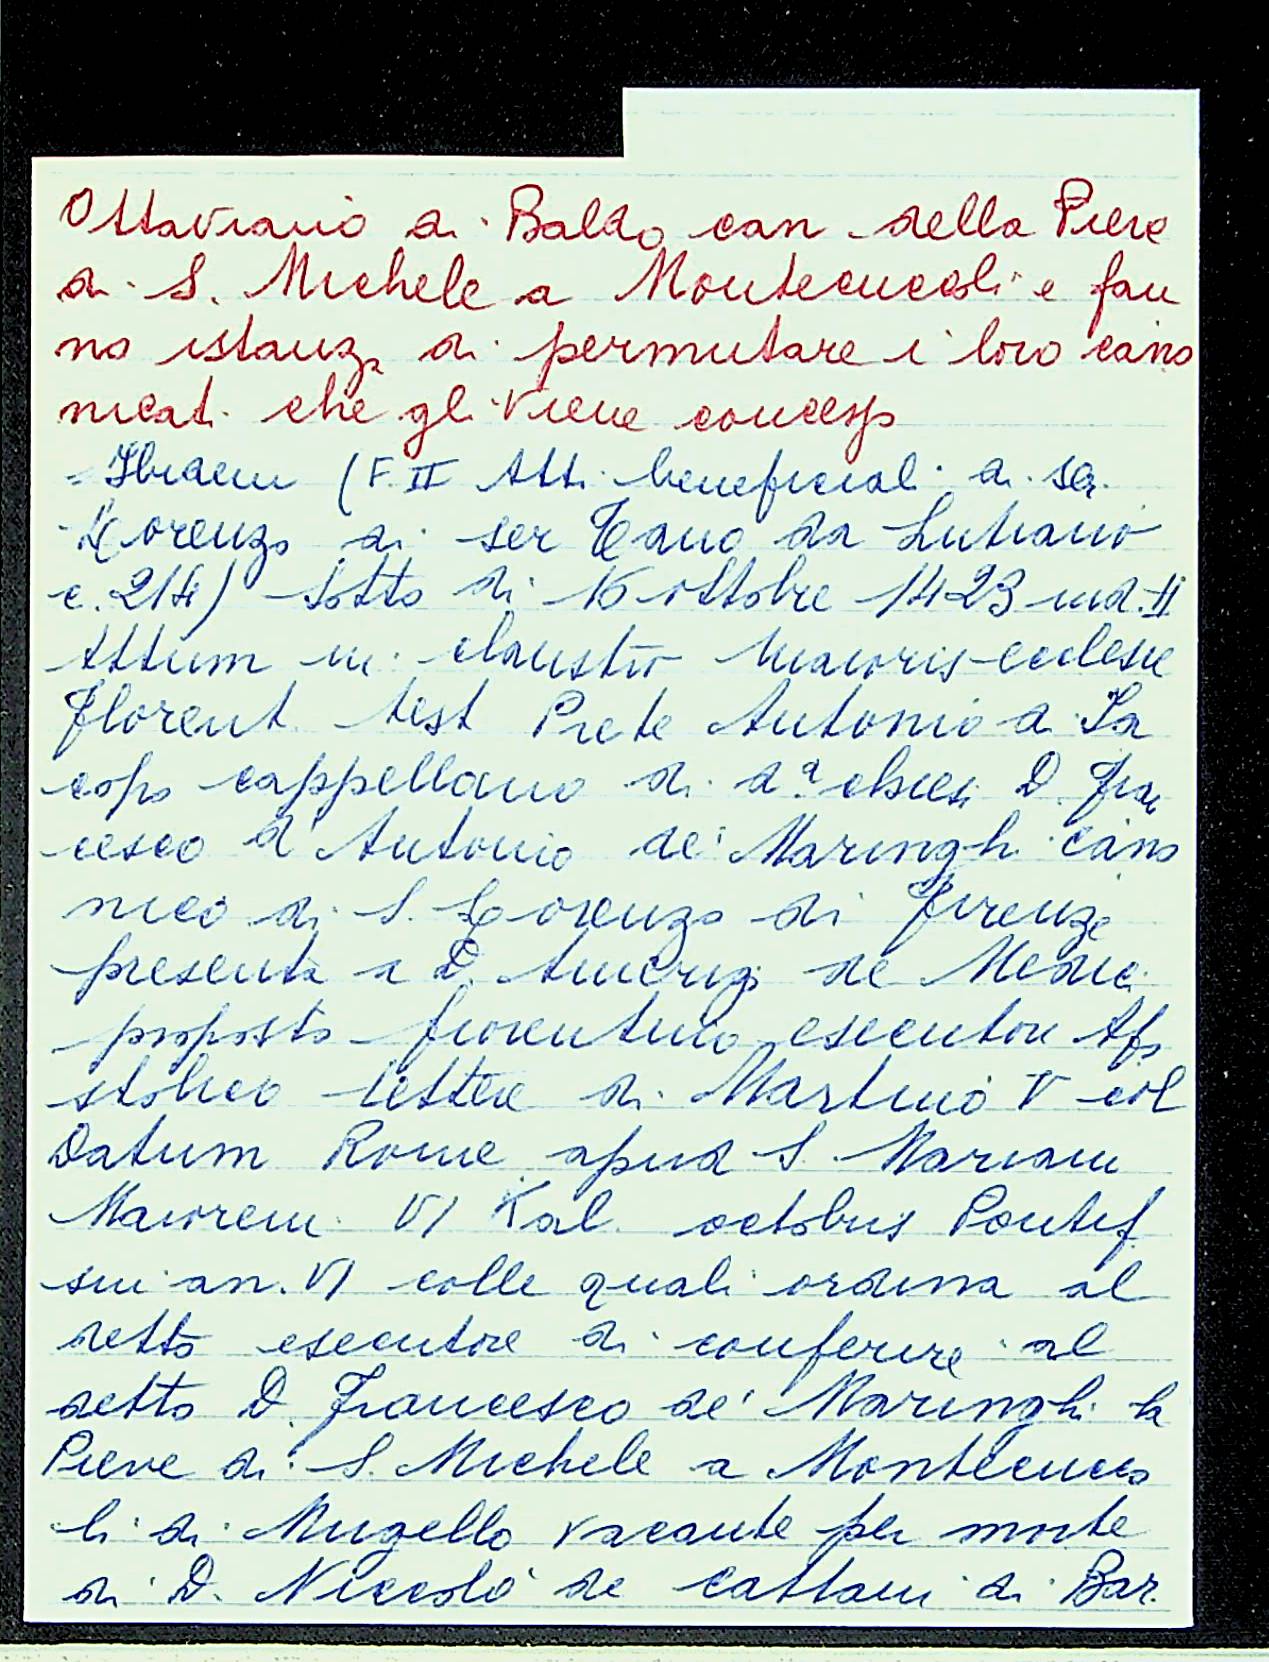 Ottaviano di Baldo can della Pieve
di S. Michele a Montecuccoli e fan
no istanza di permutare i loro cano
nicati che gli viene concesso
= Ibidem (F. II Atti beneficiali di ser
Lorenzo di ser Tano da Lutiano
c. 214) sotto di 16 ottobre 1423 ind. II
Attum in claustro maioris ecclesie
Florent test Prete Antonio di Ia
copo cappellano di da chiesa D. Fran
cesco d'Antonio de' Maringhi cano
nico di S. Lorenzo di Firenze
presenta a D. Amerigo de Medici
proposto fiorentino esecutore Apo
stolico lettere di Martino V col
Datum Rome apud S. Mariam
Maiorem VI Kal. octobris Pontif
sui an. VI colle quali ordina al
detto esecutore di conferire al
detto D. Francesco de' Maringhi la
Pieve di S. Michele a Montecucco
li di Mugello vacante per morte
di D. Niccolò de Cattani di Bar.